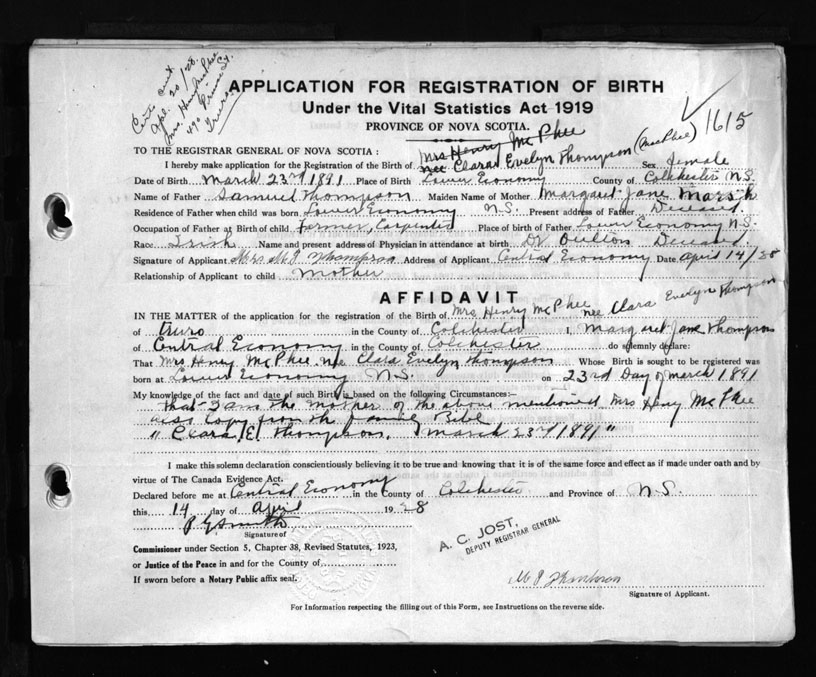 Cert. sent
Apl. 20/28.
Mrs. Henry McPhee
Prince St.
Truro
APPLICATION FOR REGISTRATION OF BIRTH
Under the Vital Statistics Act 1919
PROVINCE OF NOVA SCOTIA.
1615
TO THE REGISTRAR GENERAL OF NOVA SCOTIA :
Mrs Henry McPhee
I hereby make application for the Registration of the Birth of nee Clara Evelyn Thompson (MacPhee) Sex female
Date of Birth March 23rd 1891 Place of Birth Lower Economy County of Colchester N.S.
Name of Father Samuel Thompson Maiden Name of Mother Margaret Jane Marsh
Residence of Father when child was born Lower Economy N.S. Present address of Father Deceased
Occupation of Father at Birth of child Farmer, Carpenter Place of birth of Father Lower Economy N.S.
Race Irish Name and present address of Physician in attendance at birth Dr Deceased
Signature of Applicant Mrs M J Thompson Address of Applicant Central Economy Date April 14/28
Relationship of Applicant to child Mother
AFFIDAVIT
IN THE MATTER of the application for the registration of the Birth of Mrs. Henry McPhee nee Clara Evelyn Thompson
of Truro in the County of Colchester I, Margaret Jane Thompson
of Central Economy in the County of Colchester do solemnly declare:
That Mrs Henry McPhee nee Clara Evelyn Thompson Whose Birth is sought to be registered was
born at Lower Economy N.S. on 23rd Day of March 1891
My knowledge of the fact and date of such Birth is based on the following Circumstances:—
That I am the mother of the above mentioned Mrs Henry McPhee
also Copy from the family Bible
" Clara E. Thompson, March 23rd 1891 "
I make this solemn declaration conscientiously believing it to be true and knowing that it is of the same force and effect as if made under oath and by
virtue of The Canada Evidence Act.
Declared before me at Central Economy in the County of Colchester and Province of N.S.
this 14 day of April 1928
P G Smith
Signature of
A. C. JOST,
DEPUTY REGISTRAR GENERAL
Commissioner under Section 5, Chapter 38, Revised Statutes, 1923,
or Justice of the Peace in and for the County of
If sworn before a Notary Public affix seal.
M J Thompson
Signature of Applicant.
For Information respecting the filling out of this Form, see Instructions on the reverse side.